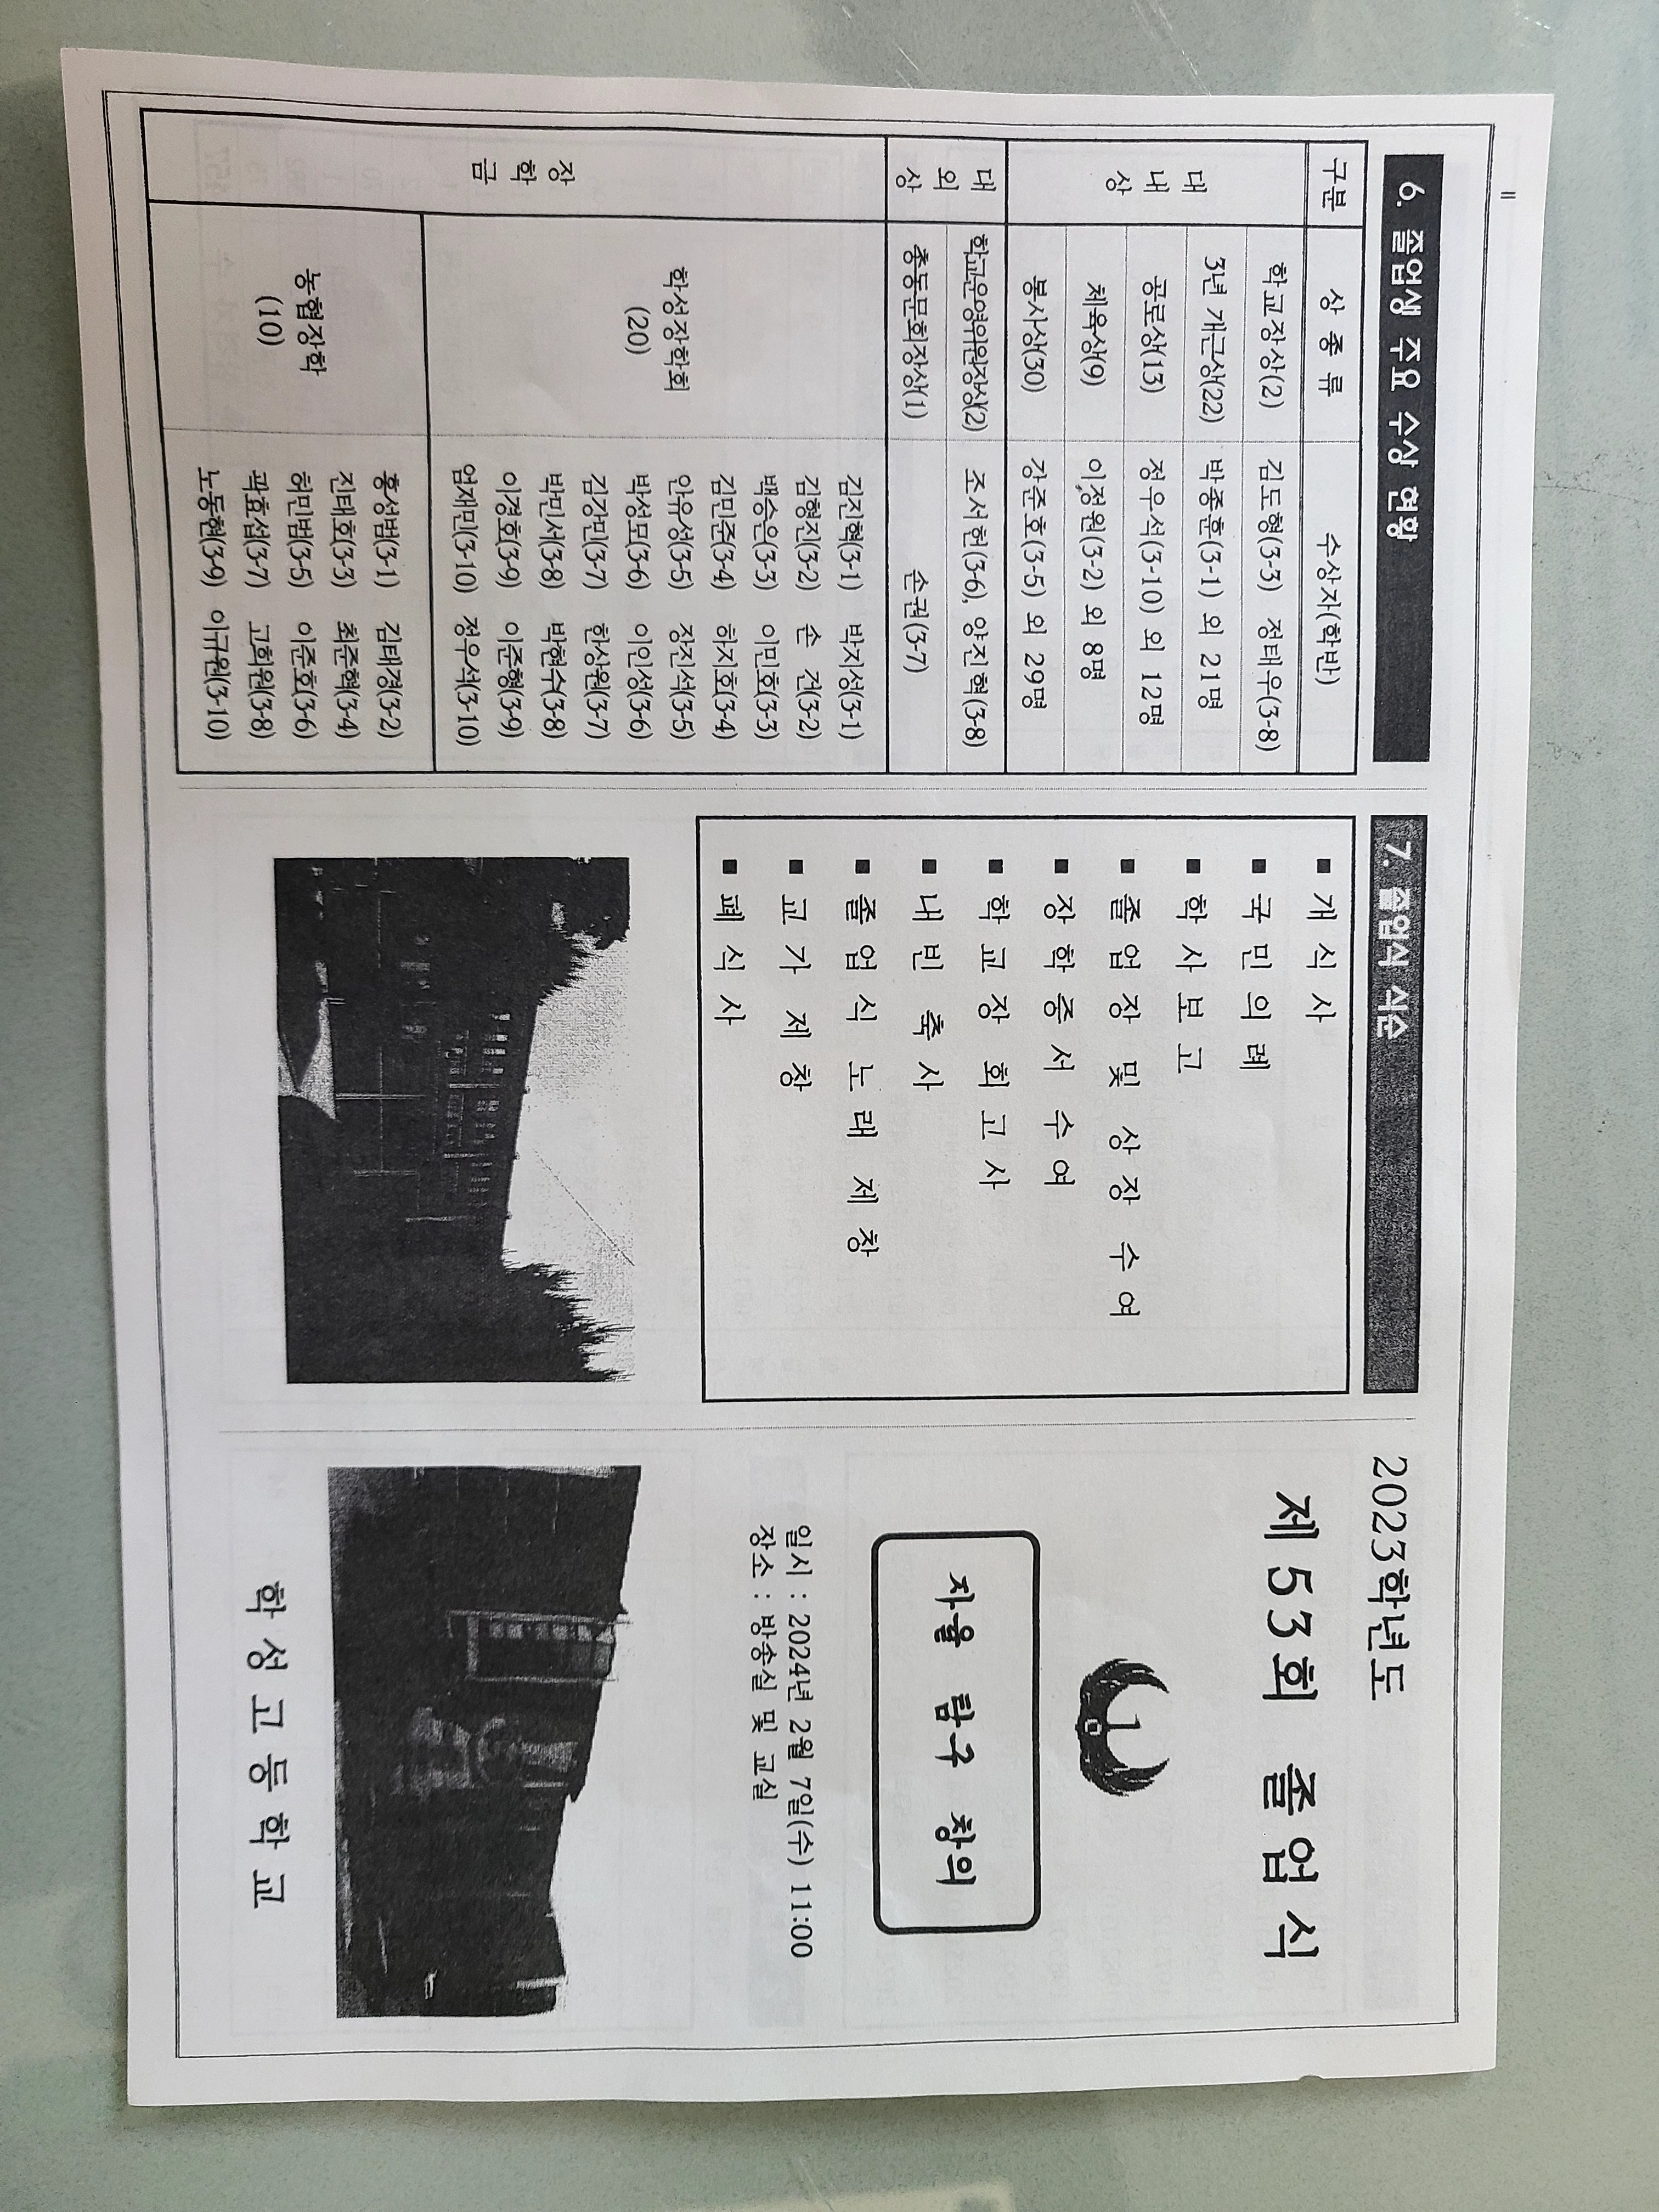 6. 졸업생 주요 수상 현황
구분 상 종 류 수상자(학반)
대내상
학교장상(2) 김도형(3-3) 정태우(3-8)
3년 개근상(22) 박종훈(3-1) 외 21명
공로상(13) 정우석(3-10) 외 12명
체육상(9) 이정원(3-2) 외 8명
봉사상(30) 강준호(3-5) 외 29명
대외상
학교운영위원장상(2) 조서현(3-6), 양진혁(3-8)
총동문회장상(1) 손권(3-7)
장학금
학성장학회
(20)
김진혁(3-1) 박지성(3-1)
김형진(3-2) 손 건(3-2)
백승은(3-3) 이민호(3-3)
김민준(3-4) 하지호(3-4)
안유성(3-5) 장진석(3-5)
박성모(3-6) 이인성(3-6)
김강민(3-7) 한상원(3-7)
박민서(3-8) 박현수(3-8)
이경호(3-9) 이준형(3-9)
엄재민(3-10) 정우석(3-10)
농협장학
(10)
홍성범(3-1) 김태경(3-2)
진태호(3-3) 최준혁(3-4)
허민범(3-5) 이준호(3-6)
곽효섭(3-7) 고희원(3-8)
노동현(3-9) 이규원(3-10)
7. 졸업식 식순
■ 개 식 사
■ 국 민 의 례
■ 학 사 보 고
■ 졸 업 장 및 상 장 수 여
■ 장 학 증 서 수 여
■ 학 교 장 회 고 사
■ 내 빈 축 사
■ 졸 업 식 노 래 제 창
■ 교 가 제 창
■ 폐 식 사
2023학년도
제53회 졸업식
자율 탐구 창의
일시 : 2024년 2월 7일(수) 11:00
장소 : 방송실 및 교실
학 성 고 등 학 교